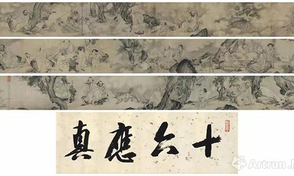 十六應真
Artron